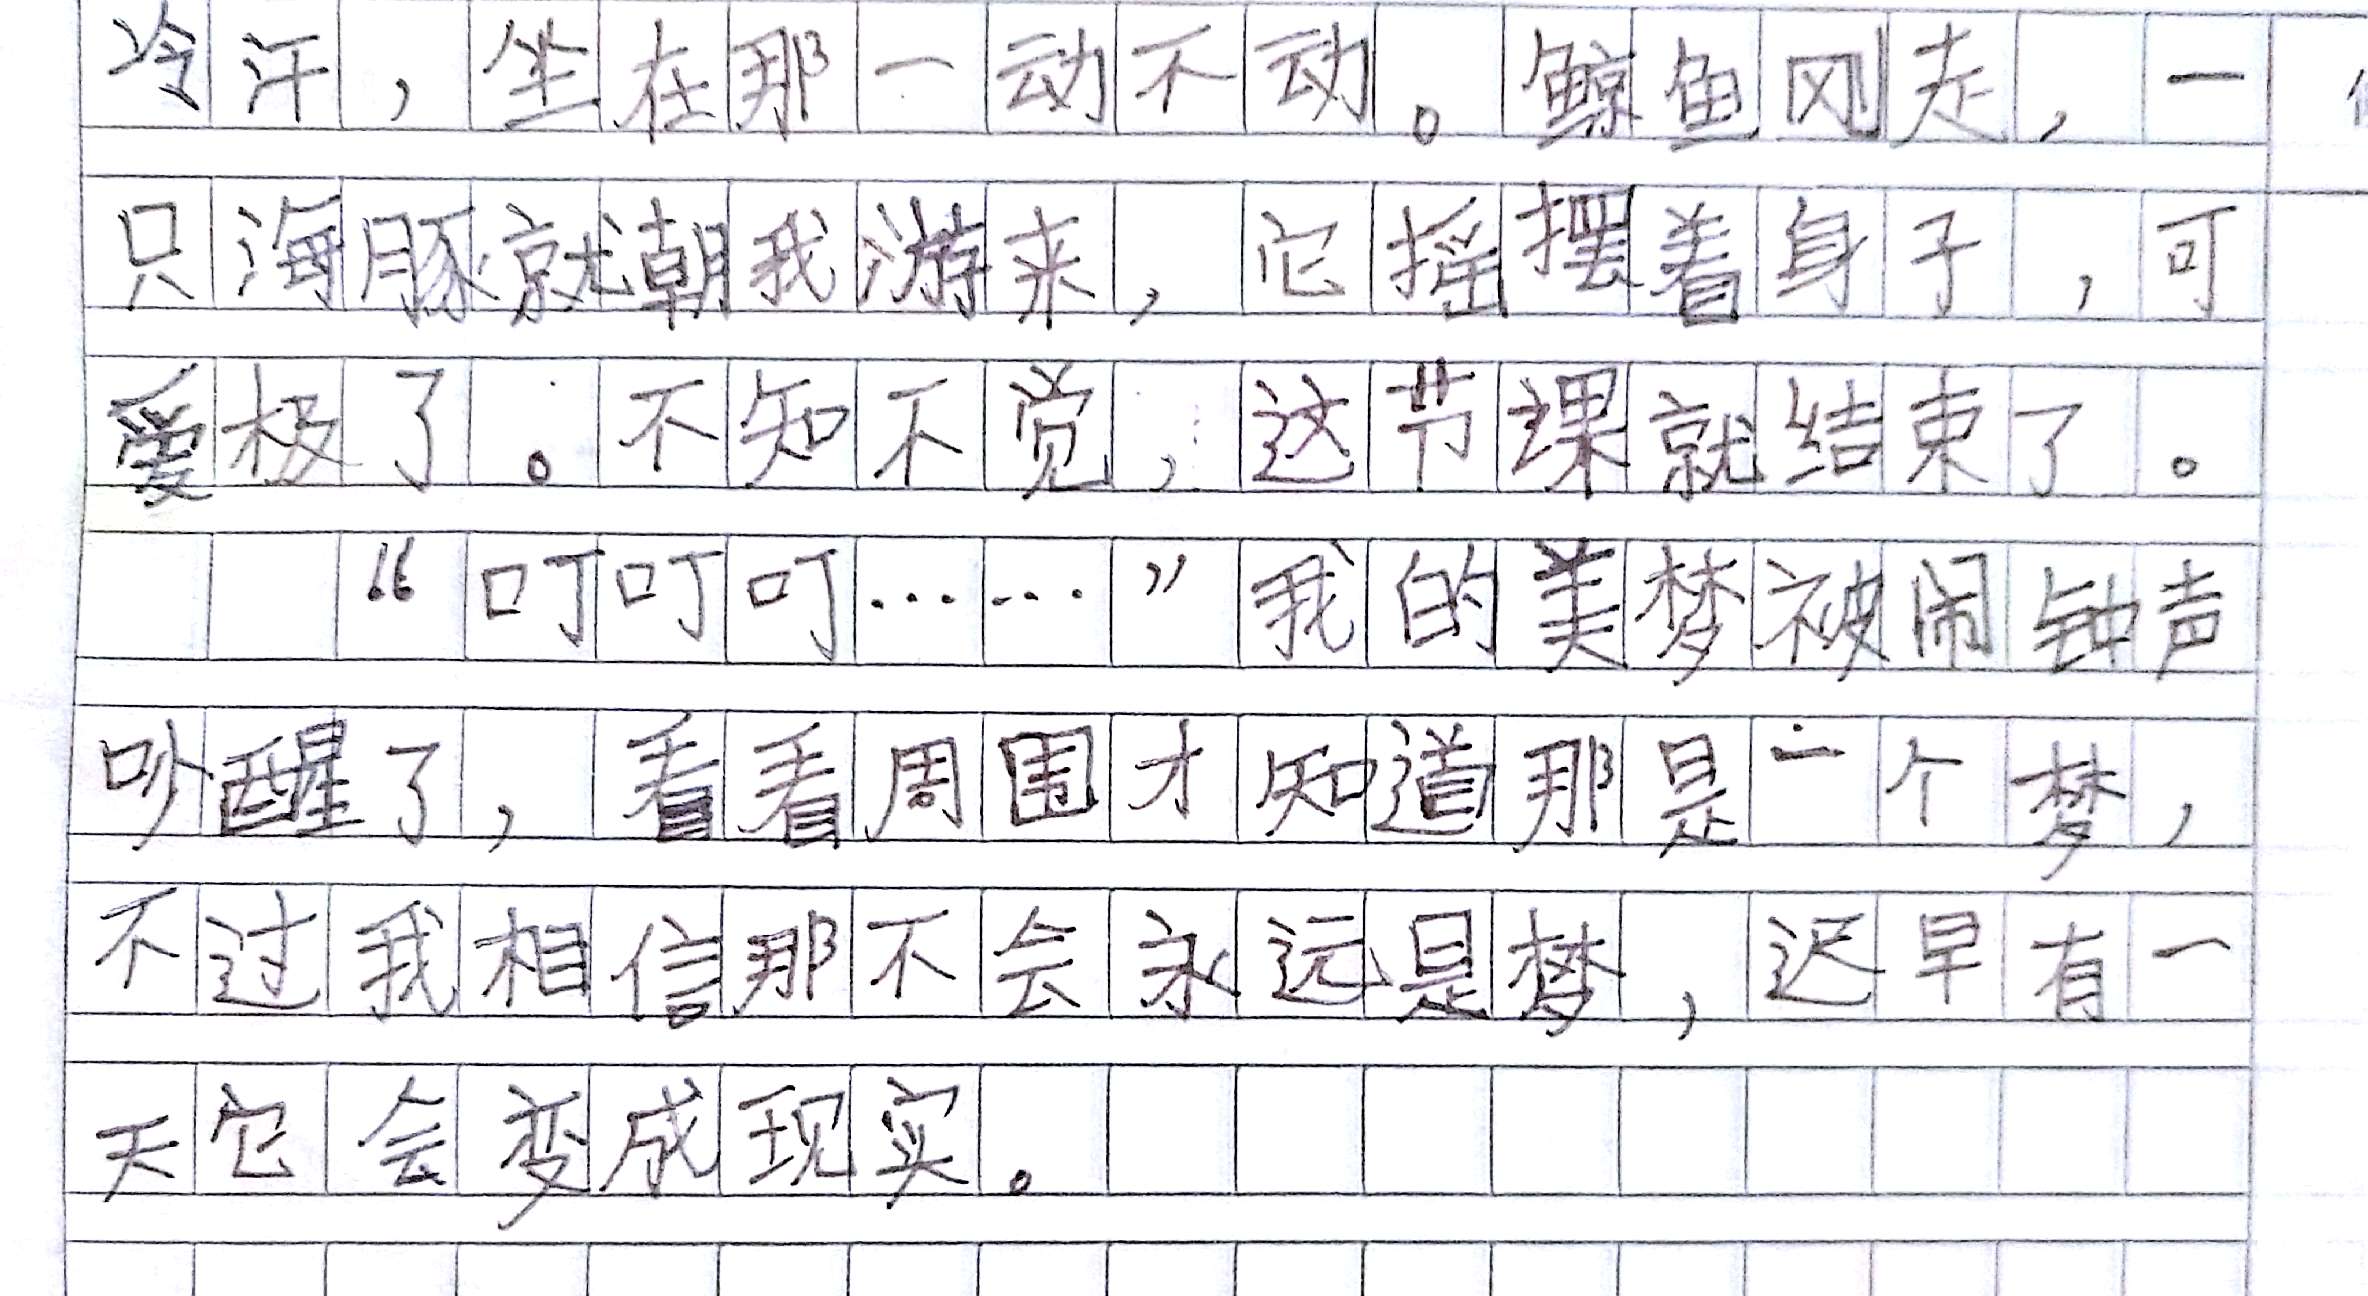 冷汗，坐在那一动不动。鲸鱼刚走，一
只海豚就朝我游来，它摇摆着身子，可
爱极了。不知不觉，这节课就结束了。
“叮叮叮……”我的美梦被闹钟声
吵醒了，看看周围才知道那是一个梦，
不过我相信那不会永远是梦，迟早有一
天它会变成现实。